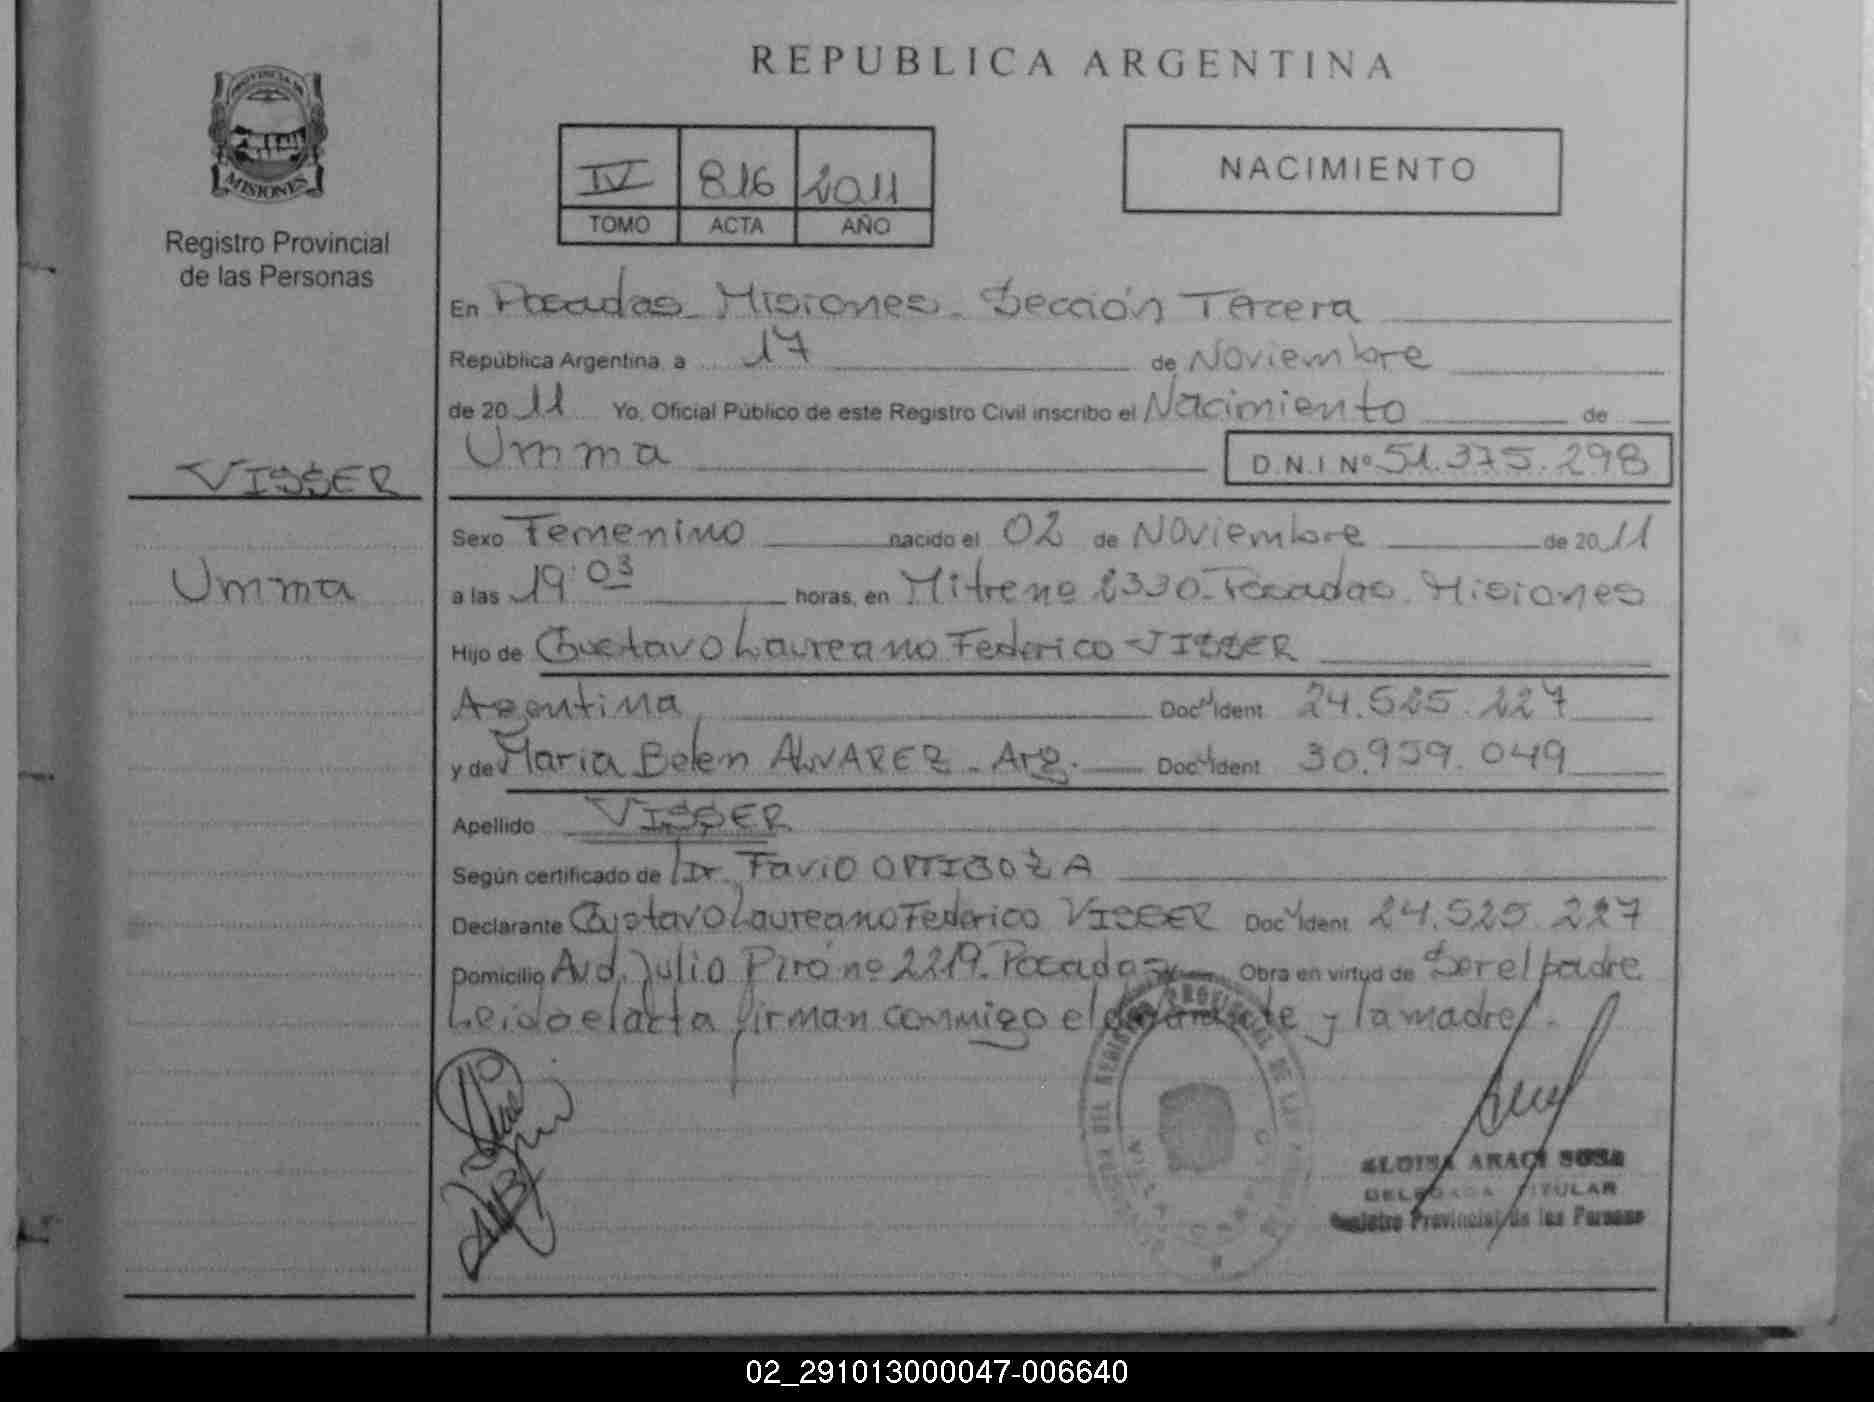 REPUBLICA ARGENTINA
PROVINCIA DE
MISIONES
Registro Provincial
de las Personas
IV 816 2011
TOMO ACTA AÑO
NACIMIENTO
En Posadas Misiones. Sección Tercera
República Argentina, a 17 de Noviembre
de 2011 Yo, Oficial Público de este Registro Civil inscribo el Nacimiento de
VISSER
Umma D.N.I Nº 51.375.298
Sexo Femenino nacido el 02 de Noviembre de 2011
Umma
a las 19:03 horas, en Mitre nº 2330 Posadas. Misiones
Hijo de Gustavo Laureano Federico VISSER
Argentina Doc Ident 24.525.227
y de Maria Belen ALVAREZ. Arg. Doc Ident 30.959.049
Apellido VISSER
Según certificado de Dr. Favio
Declarante Gustavo Laureano Federico VISSER Doc Ident 24.525.227
Domicilio Avd. Julio Piró nº 2219. Posadas Obra en virtud de Ser el padre
Leido el acta firman conmigo el declarante y la madre.
ELOISA ARACI SOSA
DELEGADA TITULAR
Registro Provincial de las Personas
02_291013000047-006640